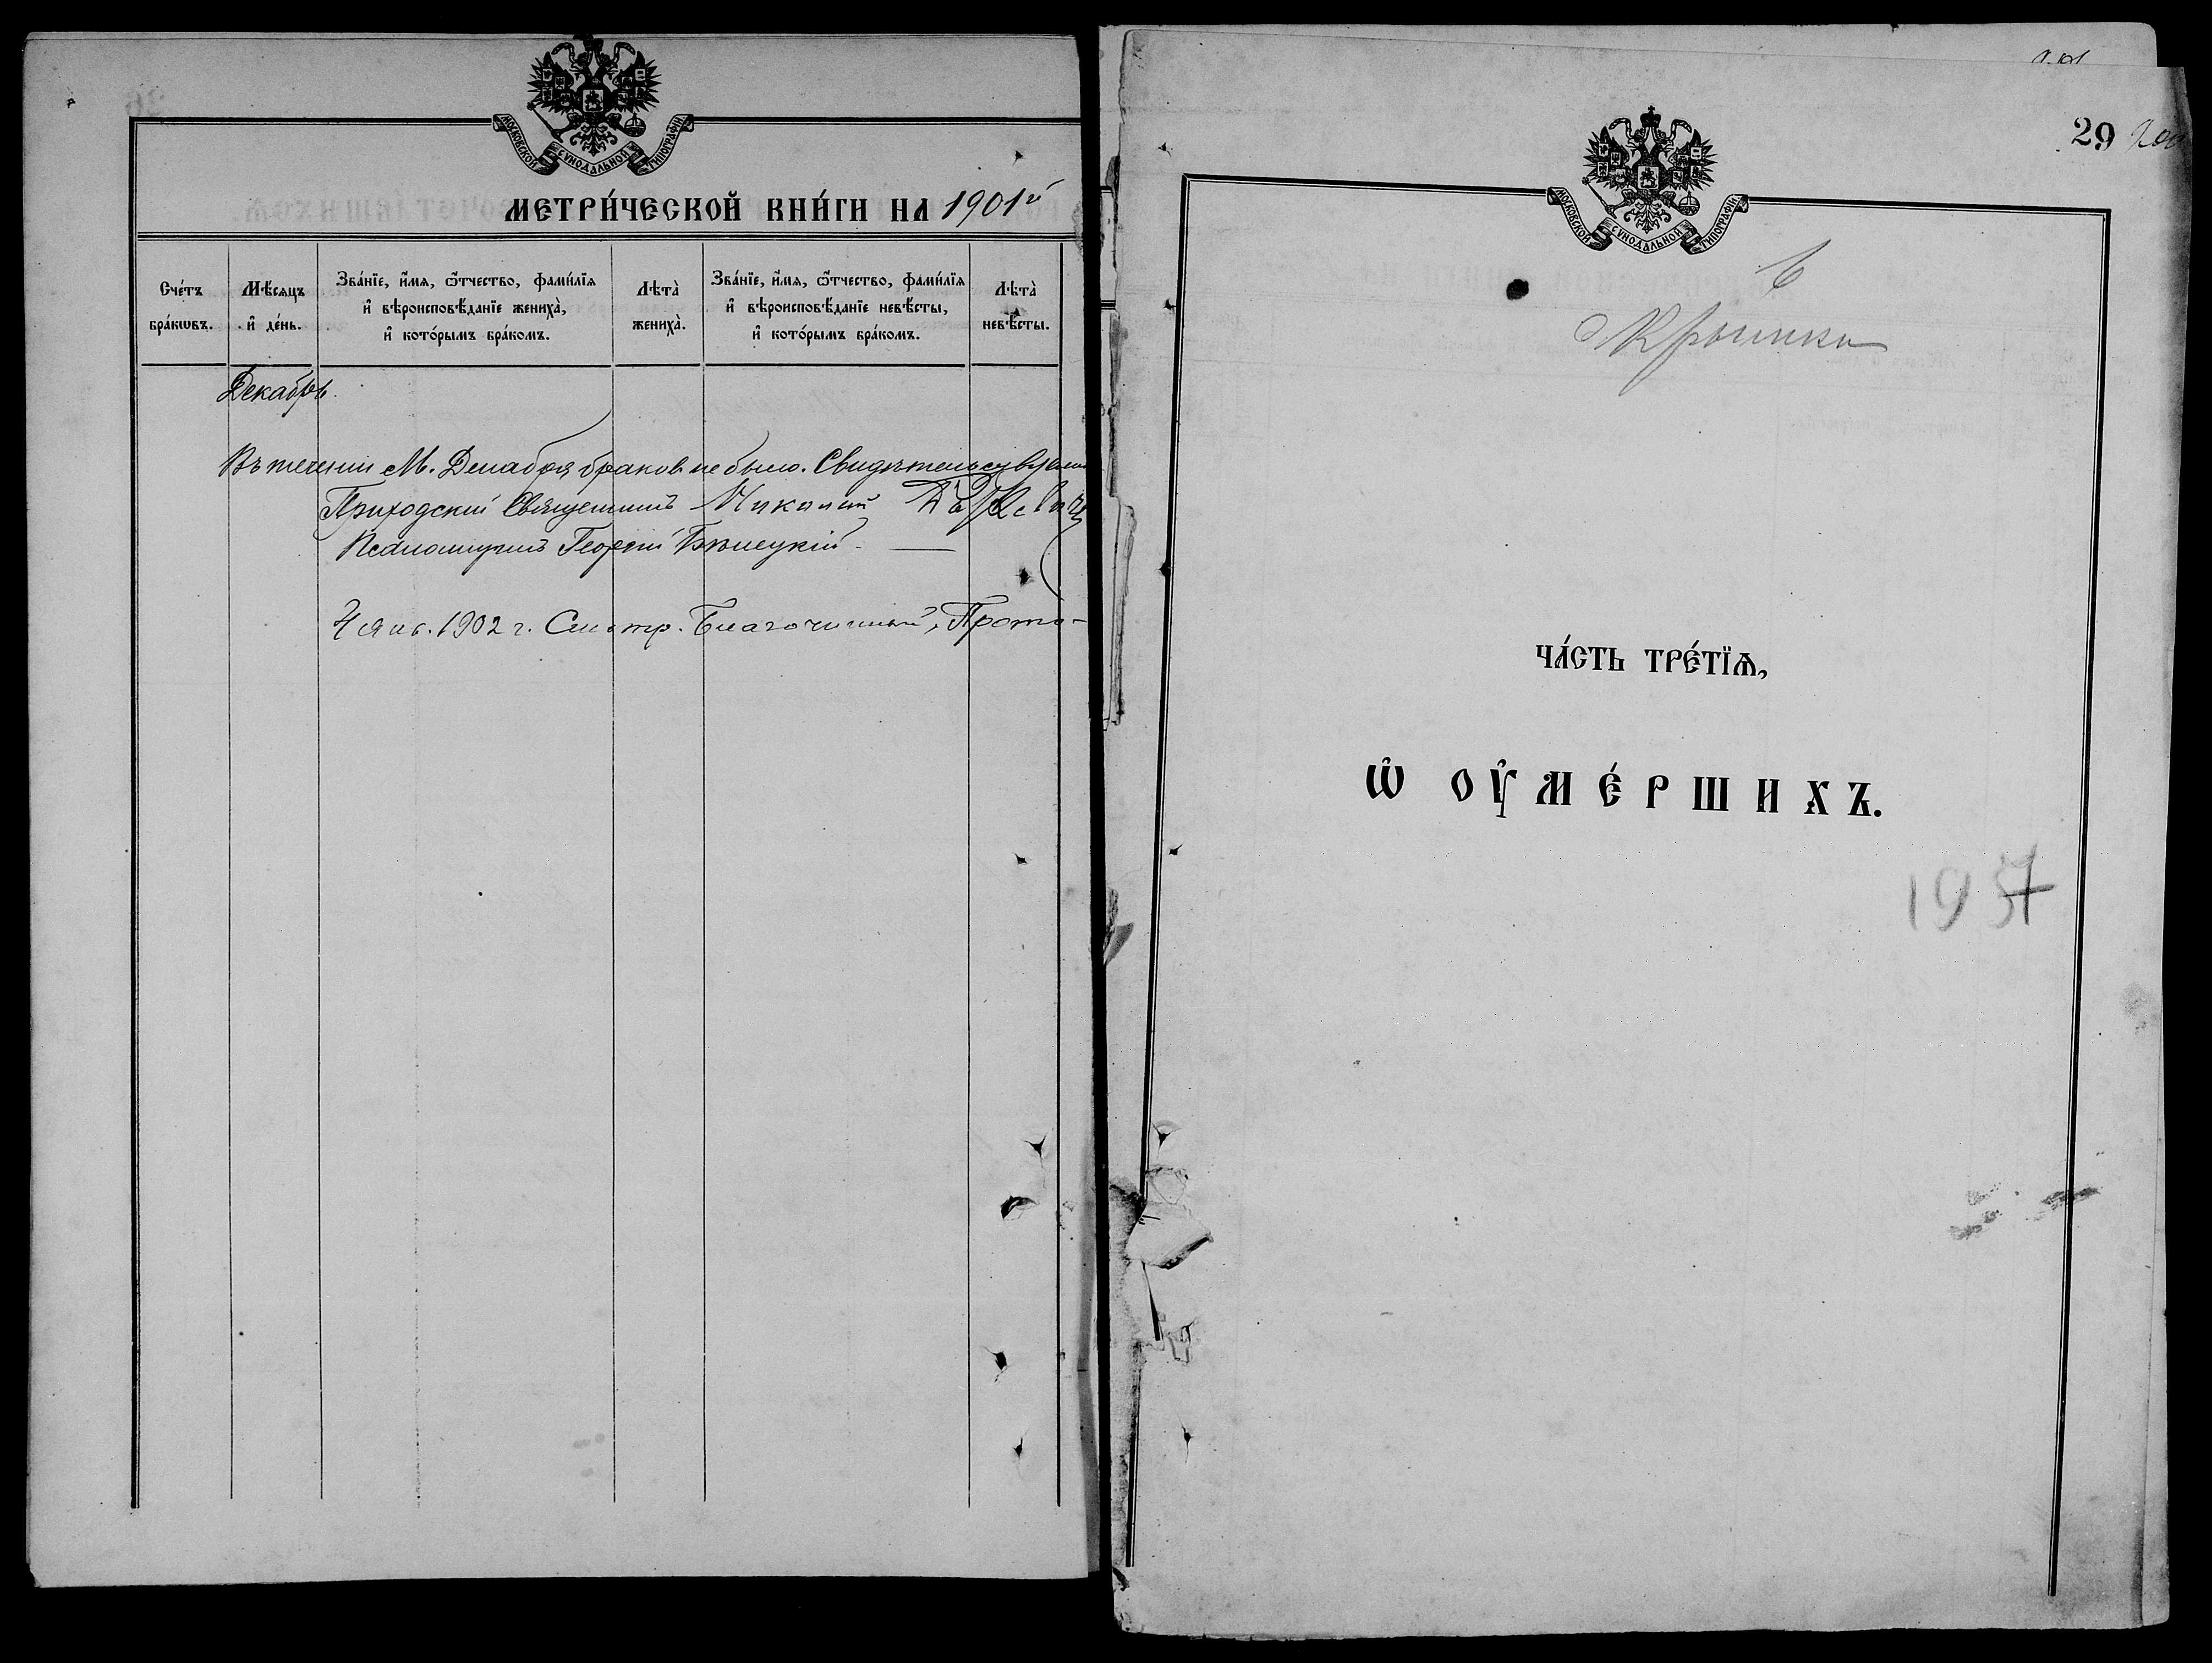 МОСКОВСКОЙ СѴНОДАЛЬНОЙ ТИПОГРАФІИ
МЕТРИ́ЧЕСКОЙ КНИ́ГИ НА 1901й
Сче́тъ бра́кωвъ.
Мѣ́сяцъ и҆ де́нь.
Зва́нїе, и҆́мѧ, ѻ҆́тчество, фами́лїѧ
и҆ вѣроисповѣ́данїе жениха̀,
и҆ кото́рымъ бра́комъ.
Лѣта̀ жениха̀.
Зва́нїе, и҆́мѧ, ѻ҆́тчество, фами́лїѧ
и҆ вѣроисповѣ́данїе невѣ́сты,
и҆ кото́рымъ бра́комъ.
Лѣта̀ невѣ́сты.
Декабрь.
Въ течении М. Декабря браковъ не было.
Приходскій Священникъ Николай
Псаломщикъ Георгій Бѣлецкій
4 янв. 1902 г. Смотр. Благочинный, Прото-
29
МОСКОВСКОЙ СѴНОДАЛЬНОЙ ТИПОГРАФІИ
ЧА́СТЬ ТРЕ́ТЇѦ,
Ѡ҆ ОУ҆МЕ́РШИХЪ.